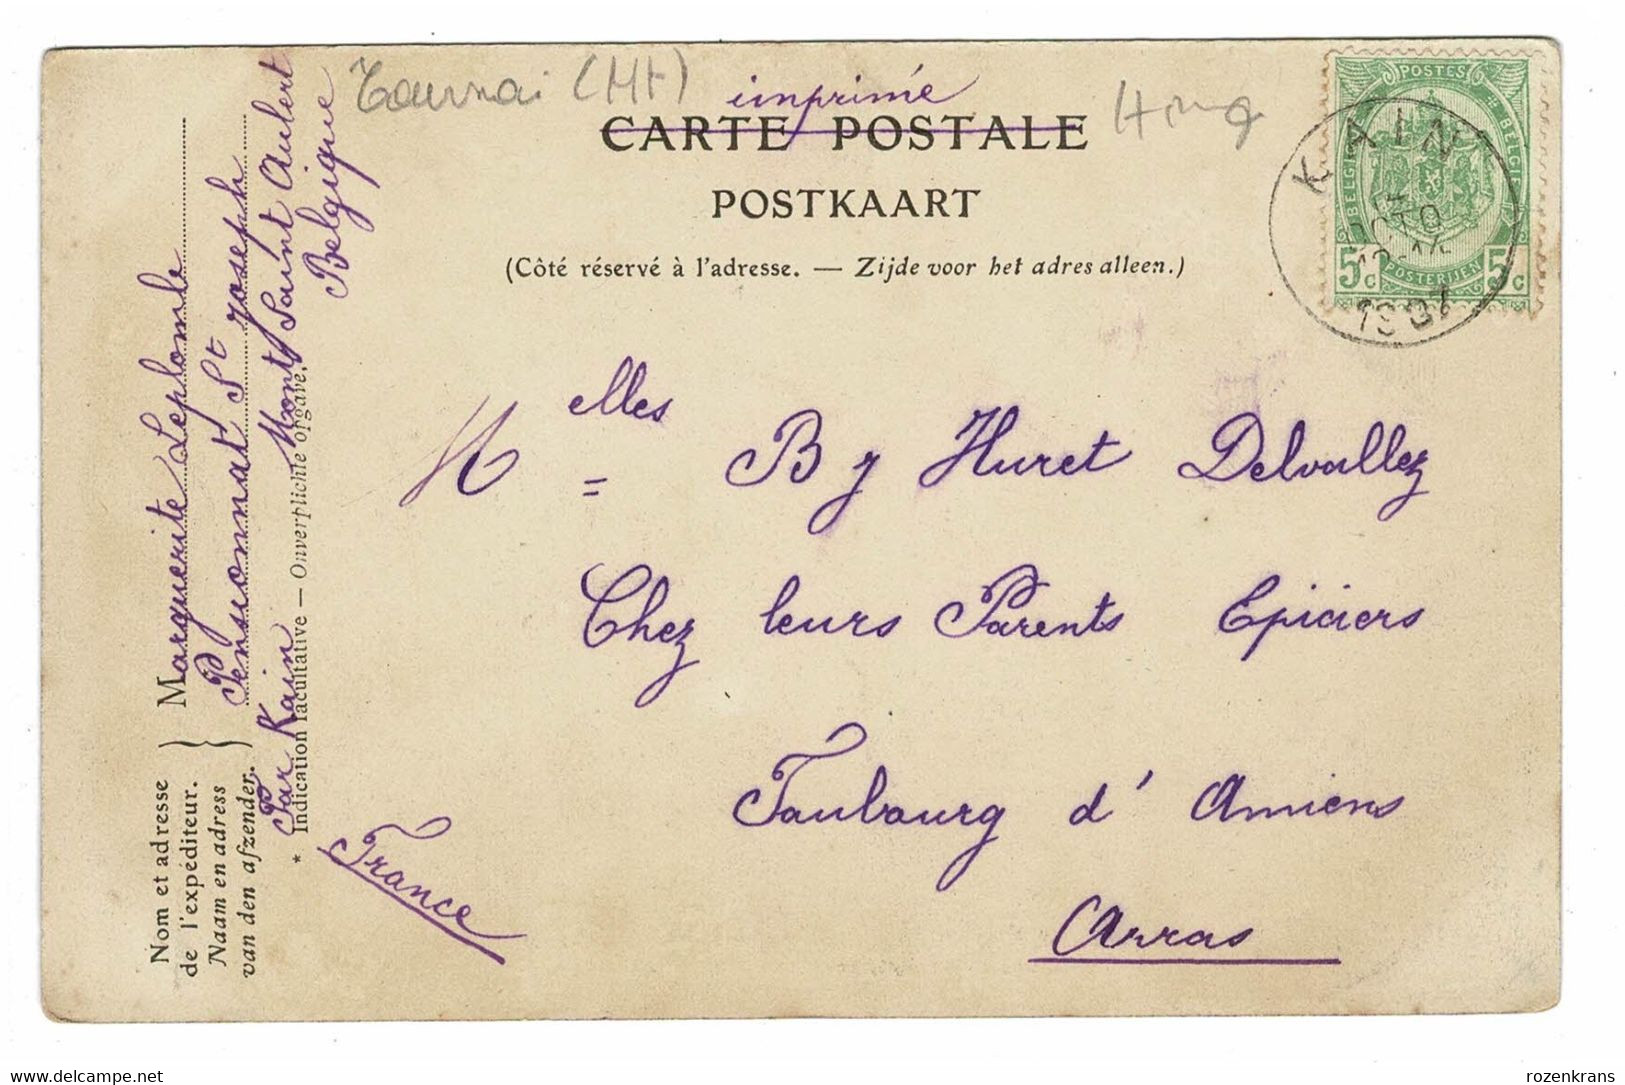 Tournai (Ht)
imprimé
CARTE POSTALE
POSTKAART
(Côté réservé à l'adresse. — Zijde voor het adres alleen.)
POSTES
BELGIQUE
BELGIE
5c POSTERIJEN 5c
KAIN
1907
Melles = B J Huret Delvallez
Chez leurs Parents Epiciers
Faubourg d' Amiens
Arras
France
Nom et adresse
de l'expéditeur.
Naam en adress
van den afzender.
Marguerite Leplomb
Pensionnat St Joseph
Mont Saint Aubert
Par Kain Belgique
* Indication facultative — Onverplichte opgave.
delcampe.net
rozenkrans